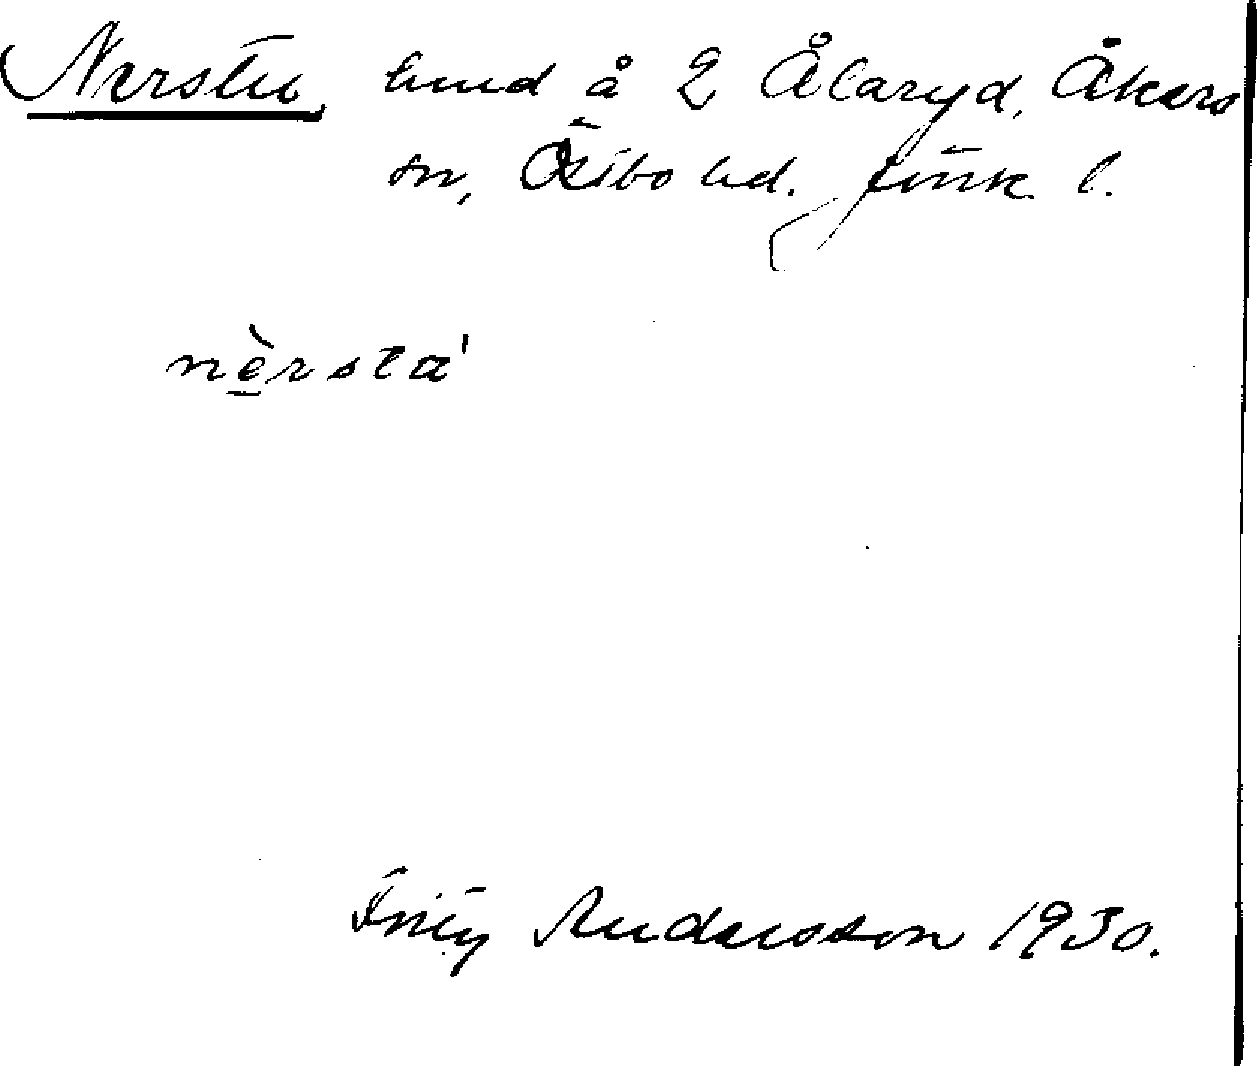 Nerstu, lund å 2 Ålaryd, Åkers
sn, Östbo hd. Jönk. l.
nèrsta'
Fritz Andersson 1930.